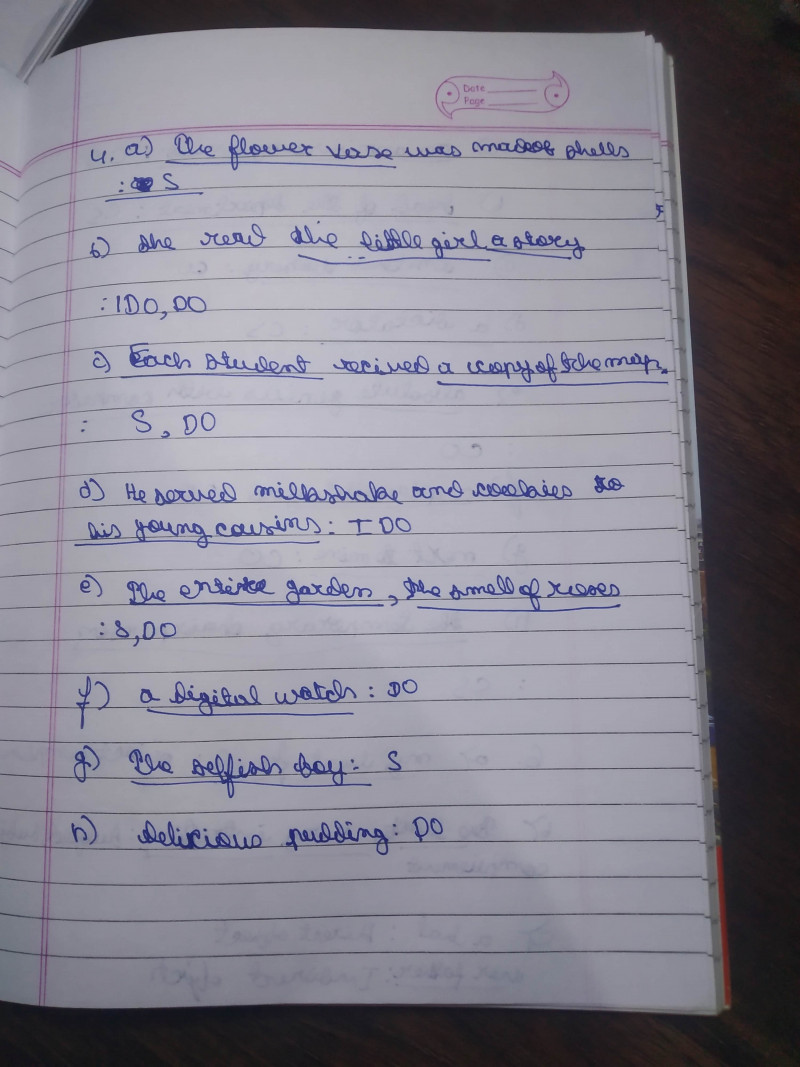 Date
Page
4. a) The flower vase was madeof shells
: S
b) She read the little girl a story
: IDO, DO
c) Each student recived a copy of the map.
: S, DO
d) He served milkshake and cookies to
his young cousins: IDO
e) The entire garden, the smell of roses
: S, DO
f) a digital watch : DO
g) The selfish boy: S
h) delicious pudding: DO